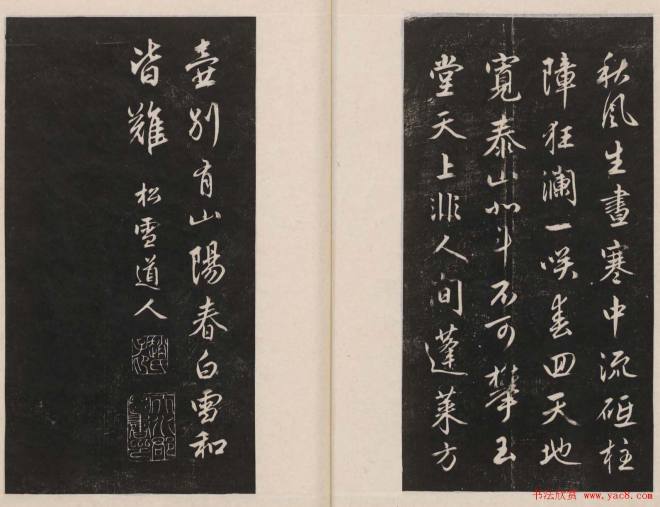 秋风生昼寒中流砥柱
障狂澜一笑春回天地
宽泰山北斗不可攀玉
堂天上非人间蓬莱方
壶别有山阳春白雪和
皆难 松雪道人
书法欣赏 www.yac8.com